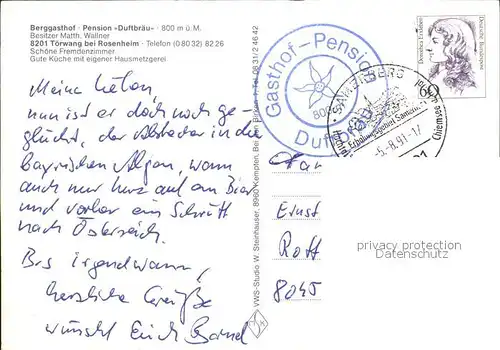 Berggasthof · Pension «Duftbräu» · 800 m ü. M.
Besitzer Matth. Wallner
8201 Törwang bei Rosenheim · Telefon (0 80 32) 82 26
Schöne Fremdenzimmer
Gute Küche mit eigener Hausmetzgerei
Meine Lieben,
nun ist er doch noch ge-
glückt, der Abstecher in die
Bayrischen Alpen, wenn
auch nur kurz auf ein Bier
und vorher ein Schritt
nach Österreich.
Bis irgendwann,
herzliche Grüße
wünscht Euch Bernd
VWS-Studio W. Steinhäuser, 8960 Kempfen,
Tel. 08 31/2 46 42
Gasthof-Pension
Duftbräu
SAMERBERG
Erholungsgebiet Samerberg
-5.-8.91-17
Chiemsee
Deutsche Bundespost
Dorothea Erxleben
60
Ernst
Rott
8045
privacy protection
DATENSCHUTZ